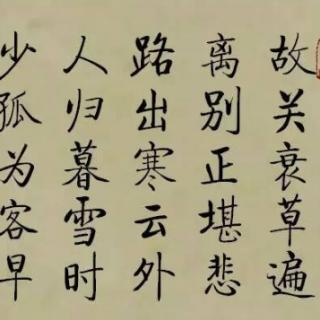 故关衰草遍
离别正堪悲
路出寒云外
人归暮雪时
少孤为客早